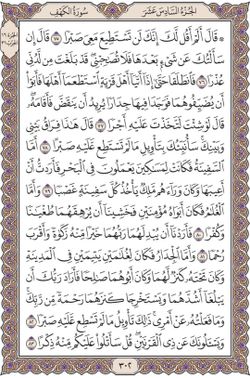 الجزء السادس عشر
سورة الكهف
۞ قَالَ أَلَمْ أَقُل لَّكَ إِنَّكَ لَن تَسْتَطِيعَ مَعِىَ صَبْرًا ٧٥ قَالَ إِن
سَأَلْتُكَ عَن شَىْءٍۭ بَعْدَهَا فَلَا تُصَٰحِبْنِى قَدْ بَلَغْتَ مِن لَّدُنِّى
عُذْرًا ٧٦ فَٱنطَلَقَا حَتَّىٰٓ إِذَآ أَتَيَآ أَهْلَ قَرْيَةٍ ٱسْتَطْعَمَآ أَهْلَهَا فَأَبَوْا۟
أَن يُضَيِّفُوهُمَا فَوَجَدَا فِيهَا جِدَارًا يُرِيدُ أَن يَنقَضَّ فَأَقَامَهُۥ
قَالَ لَوْ شِئْتَ لَتَّخَذْتَ عَلَيْهِ أَجْرًا ٧٧ قَالَ هَٰذَا فِرَاقُ بَيْنِى
وَبَيْنِكَ سَأُنَبِّئُكَ بِتَأْوِيلِ مَا لَمْ تَسْتَطِع عَّلَيْهِ صَبْرًا ٧٨ أَمَّا
ٱلسَّفِينَةُ فَكَانَتْ لِمَسَٰكِينَ يَعْمَلُونَ فِى ٱلْبَحْرِ فَأَرَدتُّ أَنْ
أَعِيبَهَا وَكَانَ وَرَآءَهُم مَّلِكٌ يَأْخُذُ كُلَّ سَفِينَةٍ غَصْبًا ٧٩ وَأَمَّا
ٱلْغُلَٰمُ فَكَانَ أَبَوَاهُ مُؤْمِنَيْنِ فَخَشِينَآ أَن يُرْهِقَهُمَا طُغْيَٰنًا
وَكُفْرًا ٨٠ فَأَرَدْنَآ أَن يُبْدِلَهُمَا رَبُّهُمَا خَيْرًا مِّنْهُ زَكَوٰةً وَأَقْرَبَ
رُحْمًا ٨١ وَأَمَّا ٱلْجِدَارُ فَكَانَ لِغُلَٰمَيْنِ يَتِيمَيْنِ فِى ٱلْمَدِينَةِ
وَكَانَ تَحْتَهُۥ كَنزٌ لَّهُمَا وَكَانَ أَبُوهُمَا صَٰلِحًا فَأَرَادَ رَبُّكَ أَن
يَبْلُغَآ أَشُدَّهُمَا وَيَسْتَخْرِجَا كَنزَهُمَا رَحْمَةً مِّن رَّبِّكَ
وَمَا فَعَلْتُهُۥ عَنْ أَمْرِى ذَٰلِكَ تَأْوِيلُ مَا لَمْ تَسْطِع عَّلَيْهِ صَبْرًا ٨٢
وَيَسْـَٔلُونَكَ عَن ذِى ٱلْقَرْنَيْنِ قُلْ سَأَتْلُوا۟ عَلَيْكُم مِّنْهُ ذِكْرًا ٨٣
٣٠٢